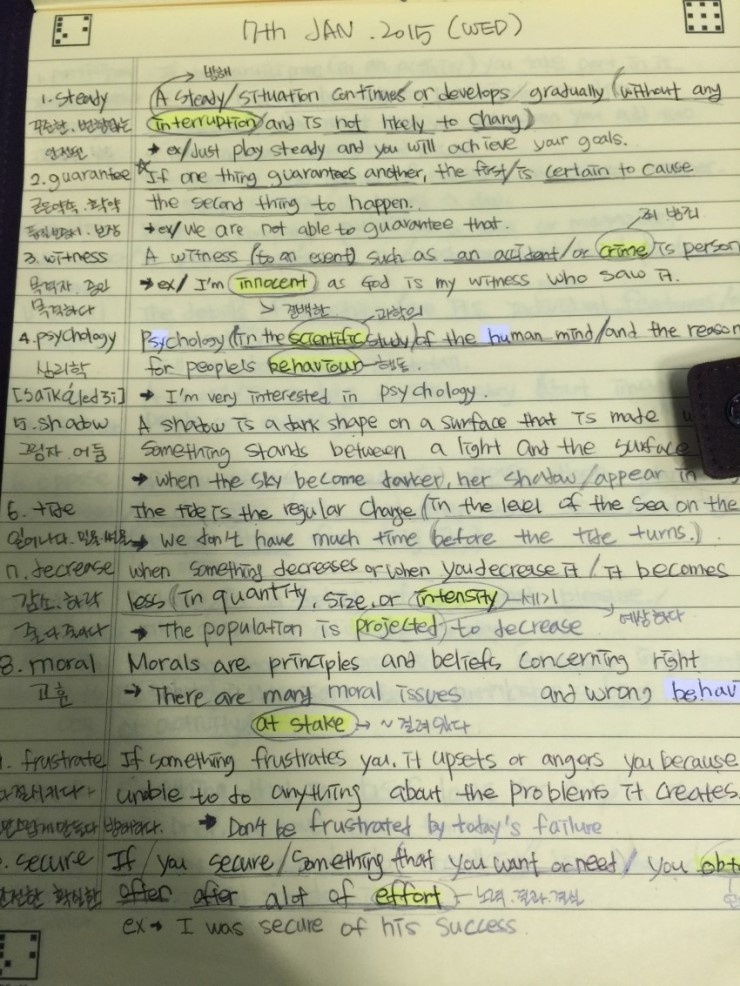 7th JAN. 2015 (WED)
방해
1. steady A steady/situation continues or develops/gradually (without any
꾸준한. 변함없는 interruption and is not likely to chang)
안정된 → ex/Just play steady and you will achieve your goals.
2. guarantee ☆If one thing guarantees another, the first/is certain to cause
굳은약속. 확약 the second thing to happen.
보장 → ex/We are not able to guarantee that.
죄 범죄
3. witness A witness (to an event) such as an accident/or crime is person
목격자. 증인 → ex/ I'm innocent as God is my witness who saw it.
목격하다 결백한 과학의
4. psychology Psychology (in the scientific study/of the human mind/and the reason
심리학 for people's behaviour 행동.
→ I'm very interested in psychology.
5. shadow A shadow is a dark shape on a surface that is made
그림자. 어둠 Something stands between a light and the surface
→ when the sky become darker, her shadow/appear in
6. tide The tide is the regular change (in the level of the sea on the
일어나다. → We don't have much time before the tide turns.)
7. decrease when something decreases or when you decrease it/it becomes
감소. 하락 less (in quantity, size, or intensity) 세기
줄다 줄이다 → The population is projected to decrease 예상하다
8. moral Morals are principles and beliefs concerning right
교훈 → There are many moral issues and wrong behavi
at stake → ~ 걸려있다
. frustrate If something frustrates you, it upsets or angers you because
좌절시키다. unable to do anything about the problems it creates.
방해하다. → Don't be frustrated by today's failure
. secure If/you secure/something that you want or need/you obt
안전한 확실한 after after alot of effort 노력. 결과. 결실
ex → I was secure of his success